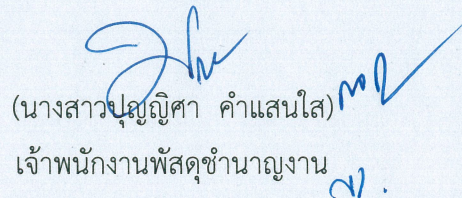 (นางสาวปุญญิศา คำแสนใส)
เจ้าพนักงานพัสดุชำนาญงาน